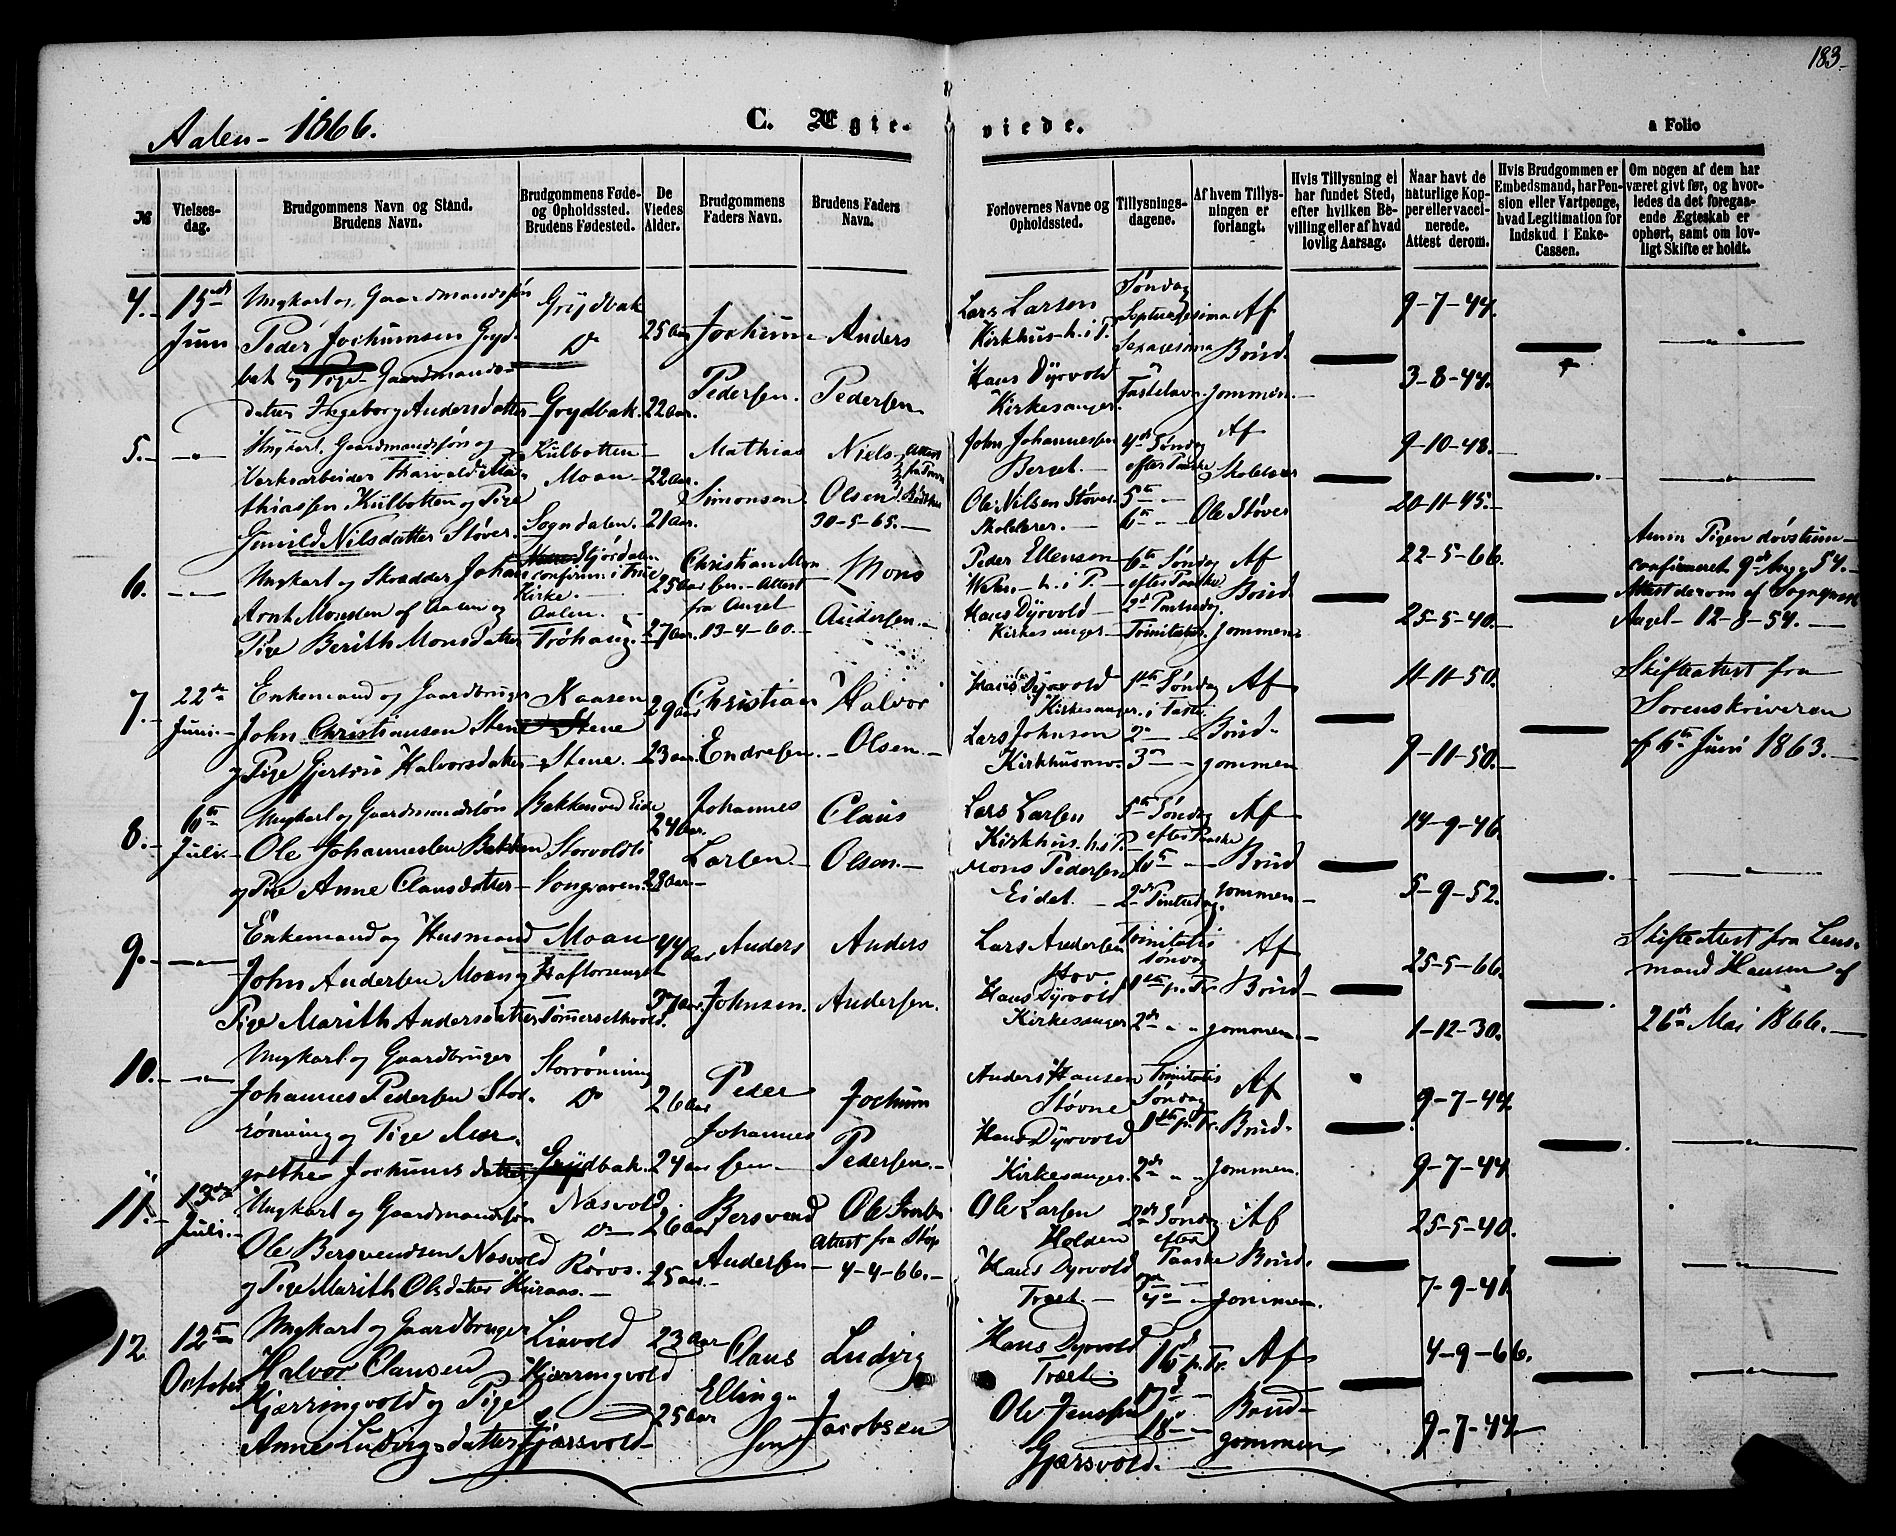 183.
Aalen - 1866.
C. Ægte-
viede.
a Folio
№
Vielses-
dag.
Brudgommens Navn og Stand.
Brudens Navn.
Brudgommens Føde-
og Opholdssted.
Brudens Fødested.
De
Viedes
Alder.
Brudgommens
Faders Navn.
Brudens Faders
Navn.
Forlovernes Navne og
Opholdssted.
Tillysnings-
dagene.
Af hvem Tillys-
ningen er
forlangt.
Hvis Tillysning ei
har fundet Sted,
efter hvilken Be-
villing eller af hvad
lovlig Aarsag.
Naar havt de
naturlige Kop-
per eller vacci-
nerede.
Attest derom.
Hvis Brudgommen er
Embedsmand, har Pen-
sion eller Vartpenge,
hvad Legitimation for
Indskud i Enke-
Cassen.
Om nogen af dem har
været givt før, og hvor-
ledes da det foregaa-
ende Ægteskab er
ophørt, samt om lov-
ligt Skifte er holdt.
4.
15de
Juni
Ungkarl og Gaardmandssøn
Peder Jochumsen Gryd-
bak og Pige Gaardmands-
datter Ingeborg Andersdatter
Grydbak
Do
Grydbak.
25 Aar
22 Aar.
Jochum
Pedersen.
Anders
Pedersen
Lars Larsen
Kirkhus h. i P.
Hans Dyrvold
Kirkesanger.
Søndag
Septuagesima
Sexagesima
Fastelavn
Af
Brud-
gommen.
9-7-44.
3-8-44.
5.
Ungkarl, Gaardmandssøn og
Værksarbeider Tharvald Ma-
thiassen Kulbotten og Pige
Gunild Nilsdatter Støver.
Kulbotten
Moan
Sogndalen.
22 Aar.
21 Aar.
Mathias
Simonsen
Niels
Olsen
30-5-65.
John Johannessen
Berget.
Ole Nilsen Støver
Skolelærer.
4de Søndag
efter Paaske
5te
6te
Af
Skolelærer
Ole Støver
9-10-48.
20-11-45.
6.
Ungkarl og Skrædder Johan
Arnt Monsen af Aalen og
Pige Berith Monsdatter
Stjørdalen
confirm. i
Kirke.
Aalen.
Trøhaug.
25 Aar
27 Aar
Christian Mon
sen. Attest
fra Anget
13-4-60.
Mons
Andersen.
Peder Ellensen
h. i P.
Hans Dyrvold
Kirkesanger
6te Søndag
efter Paaske
2d Pintsedag
Trinitatis.
Af
Brud
gommen
22-5-66.
25-5-40.
Pigen døvstum
confirmeret 9de Aug. 54.
Attest derom af Sognepræst
Angel 12-8-54.
7.
22de
Juni.
Enkemand og Gaardbruger
John Christiansen Stene
og Pige Gjertru Halvorsdatter
Kaasen
Stene
Stene.
29 Aar
23 Aar.
Christian
Endresen.
Halvor
Olsen.
Hans Dyrvold
Kirkesanger.
Lars Johnsen
Kirkhusmo.
1ste Søndag
i Faste
2de
3de
Af
Brud-
gommen
11-11-50.
9-11-50.
Skifteattest fra
Sorenskriveren
af 6te Juni 1863.
8.
6te
Juli.
Ungkarl og Gaardmandssøn
Ole Johannessen Bakken
og Pige Anne Clausdatter
Bakken ved Eide
Storvoldti
Vongraven.
24 Aar.
28 Aar.
Johannes
Larsen
Claus
Olsen.
Lars Larsen
Kirkhus. h. i P.
Mons Pedersen
Eidet.
5te Søndag
efter Paaske
6te
2de Pintsedag
Af
Brud
gommen
14-9-46.
5-9-52.
9.
Enkemand og Husmand
John Andersen Moan og
Pige Marith Andersdatter
Moan
44
Aar
37 Aar.
Anders
Johnsen.
Anders
Andersen.
Lars Andersen
Hov
Hans Dyrvold
Kirkesanger
Trinitatis
Søndag
1ste p. Tr.
2de
Af
Brud-
gommen.
25-5-66.
1-12-30.
Skifteattest fra Lens-
mand Hansen af
26de Mai 1866.
10.
Ungkarl og Gaardbruger
Johannes Pedersen Stor-
rønning og Pige Mar-
grethe Jochumsdatter
Storrønning
Do
Grydbak.
26 Aar
24 Aar
Peder
Johannes
sen
Jochum
Pedersen.
Anders Hansen
Støvne
Hans Dyrvold
Kirkesanger.
Trinitatis
Søndag
1ste p. Tr.
2de
Af
Brud-
gommen.
9-7-44.
9-7-44.
11.
13de
Juli.
Ungkarl og Gaardmandssøn
Ole Bersvendsen Næsvold
og Pige Marith Olsdatter Kuraas.
Næsvold.
Do
Røros.
26 Aar
25 Aar.
Bersvend
Andersen
Ole
Attest fra
4-4-66.
Ole Larsen
Holden
Hans Dyrvold
Træet.
2de Søndag
efter
Paaske
4de
Af
Brud-
gommen.
25-5-40.
7-9-41.
12
12te
October
Ungkarl og Gaardbruger
Halvor Clausen
Kjærringvold og Pige
Anne Ludvigsdatter
Liavold
Kjærringvold
Gjærsvold
23 Aar
25 Aar
Claus
Elling-
sen
Ludvig
Jacobsen
Hans Dyrvold
Træet.
Ole Jenssen
Gjærsvold.
16d p. Tr.
17d
18d
Af
Brud-
gommen
4-9-66.
9-7-44